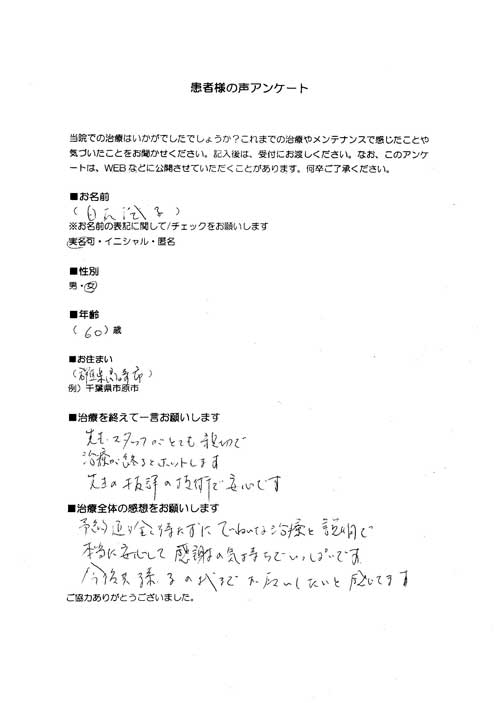 患者様の声アンケート
当院での治療はいかがでしたでしょうか？これまでの治療やメンテナンスで感じたことや
気づいたことをお聞かせください。記入後は、受付にお渡しください。なお、このアンケ
ートは、WEBなどに公開させていただくことがあります。何卒ご了承ください。
■お名前
（ 子 ）
※お名前の表記に関して/チェックをお願いします
実名可・イニシャル・匿名
■性別
男・女
■年齢
（ 60 ）歳
■お住まい
（群馬県高崎市）
例）千葉県市原市
■治療を終えて一言お願いします
先生・スタッフがとても親切で
治療が終るとホットします
先生の抜群の技術で安心です
■治療全体の感想をお願いします
予約通り全く待たずに ていねいな治療と説明で
本当に安心して感謝の気持ちでいっぱいです
今後共孫の代までお願いしたいと感じてます
ご協力ありがとうございました。